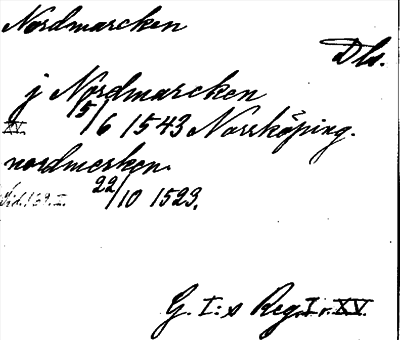 Nordmarcken
Dls.
j Nordmarcken
XV. 15/6 1543 Norrköping.
nordmerken.
I. 22/10 1523.
G. I:s Reg. I o. XV.